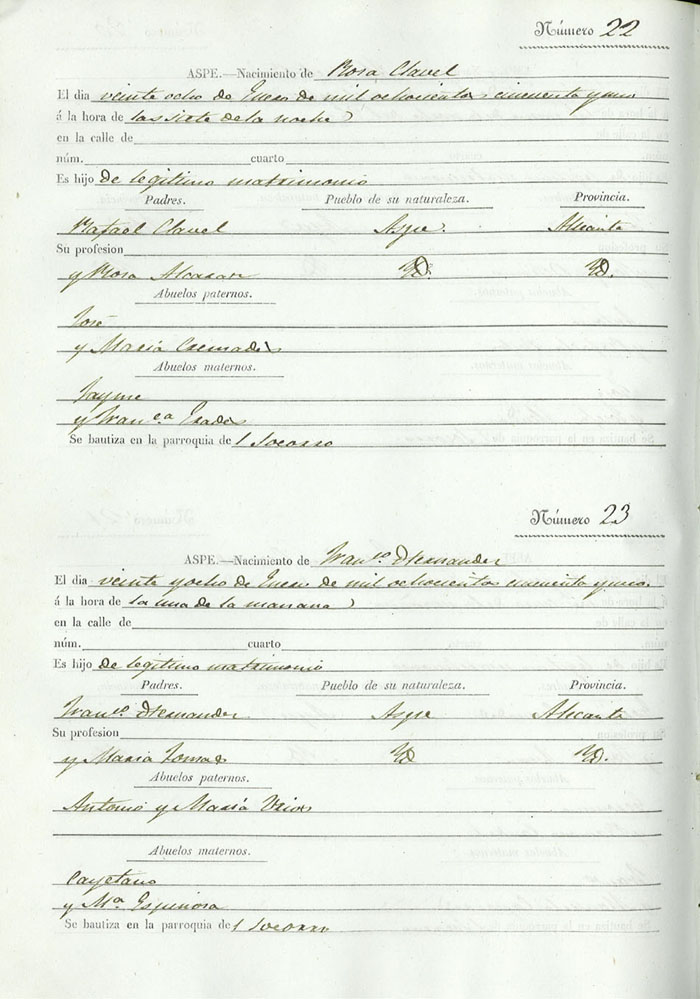 Número 22
ASPE.—Nacimiento de Rosa Clavel
El dia veinte ocho de Enero de mil ochocientos cincuenta y uno
á la hora de las siete de la noche
en la calle de
núm. cuarto
Es hijo de legitimo matrimonio
Padres. Pueblo de su naturaleza. Provincia.
Rafael Clavel Aspe. Alicante
Su profesion
y Rosa Alcaraz YD. YD.
Abuelos paternos.
José
y Maria Cremades
Abuelos maternos.
Jayme
y Fran.ca Prades
Se bautiza en la parroquia de l Socorro
Número 23
ASPE.—Nacimiento de Fran.co Hernandez
El dia veinte y ocho de Enero de mil ochocientos cincuenta y uno
á la hora de la una de la mañana
en la calle de
núm. cuarto
Es hijo de legitimo matrimonio
Padres. Pueblo de su naturaleza. Provincia.
Fran.co Hernandez Aspe Alicante
Su profesion
y Maria Tomas YD YD.
Abuelos paternos.
Antonio y Maria
Abuelos maternos.
Cayetano
y Mª Espinosa
Se bautiza en la parroquia de l Socorro